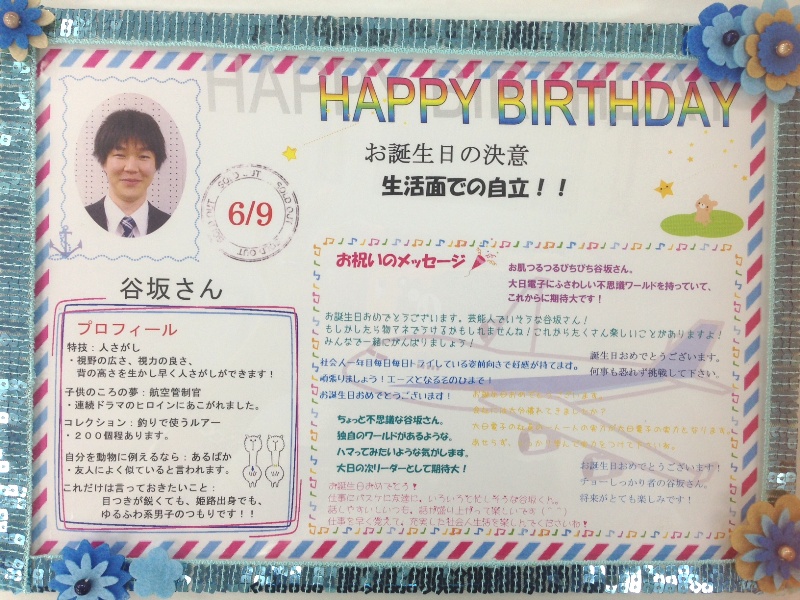 HAPPY BIRTHDAY
お誕生日の決意
生活面での自立！！
SOLD OUT
6/9
谷坂さん
プロフィール
特技：人さがし
・視野の広さ、視力の良さ、
背の高さを生かし早く人さがしができます！
子供のころの夢：航空管制官
・連続ドラマのヒロインにあこがれました。
コレクション：釣りで使うルアー
・２００個程あります。
自分を動物に例えるなら：あるぱか
・友人によく似ていると言われます。
これだけは言っておきたいこと：
目つきが鋭くても、姫路出身でも、
ゆるふわ系男子のつもりです！！
お祝いのメッセージ
お肌つるつるぴちぴち谷坂さん。
大日電子にふさわしい不思議ワールドを持っていて、
これからに期待大です！
お誕生日おめでとうございます。芸能人でいそうな谷坂さん！
もしかしたら物マネでうけるかもしれませんね！これからたくさん楽しいことがありますよ！
みんなで一緒にがんばりましょう！
社会人一年目毎日毎日トライしている姿前向きで好感が持てます。
頑張りましょう！エースとなるその日まで！
お誕生日おめでとうございます！
誕生日おめでとうございます。
何事も恐れず挑戦して下さい。
ちょっと不思議な谷坂さん。
独自のワールドがあるような。
ハマってみたいような気がします。
大日の次リーダーとして期待大！
お誕生日おめでとうございます！
チョーしっかり者の谷坂さん。
将来がとても楽しみです！
お誕生日おめでとう！
仕事にバスケに友達に、いろいろと忙しそうな谷坂くん。
話しやすいしいつも、話が盛り上がって楽しいです(^^)
仕事を早く覚えて、充実した社会人生活を楽しんでくださいね！